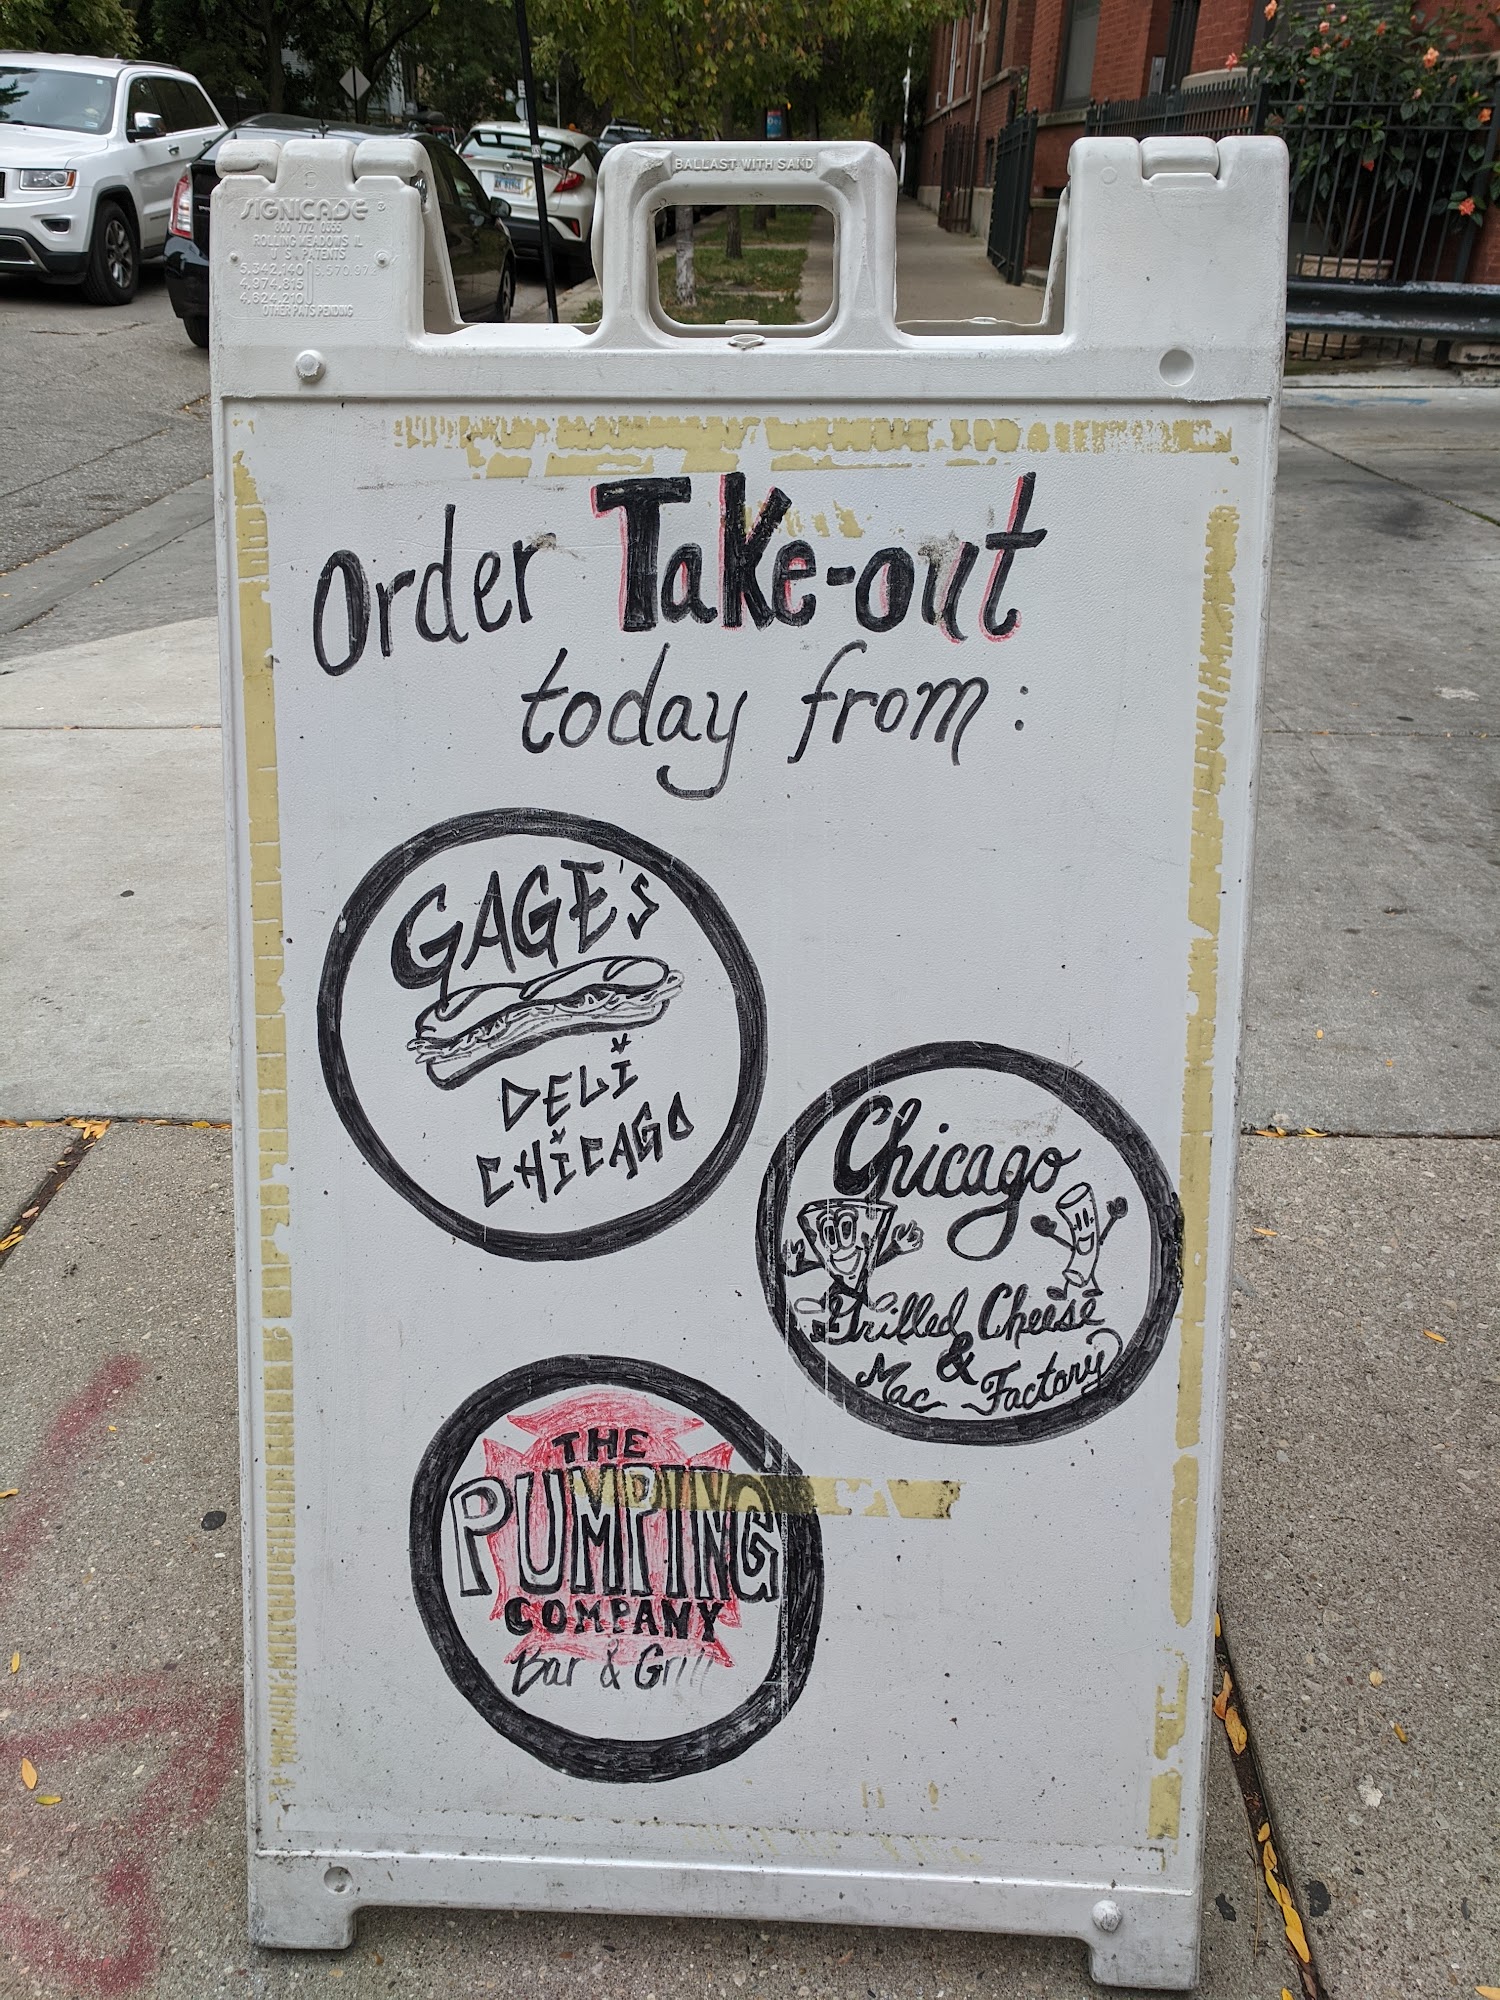 BALLAST WITH SAND
SIGNICADE
800 772 0355
ROLLING MEADOWS IL
U S PATENTS
5,342,140
4,974,815
4,924,210
OTHER PATS PENDING
Order Take-out
today from:
GAGE'S
DELI
CHICAGO
Chicago
Grilled Cheese
&
Mac Factory
THE
PUMPING
COMPANY
Bar & Grill